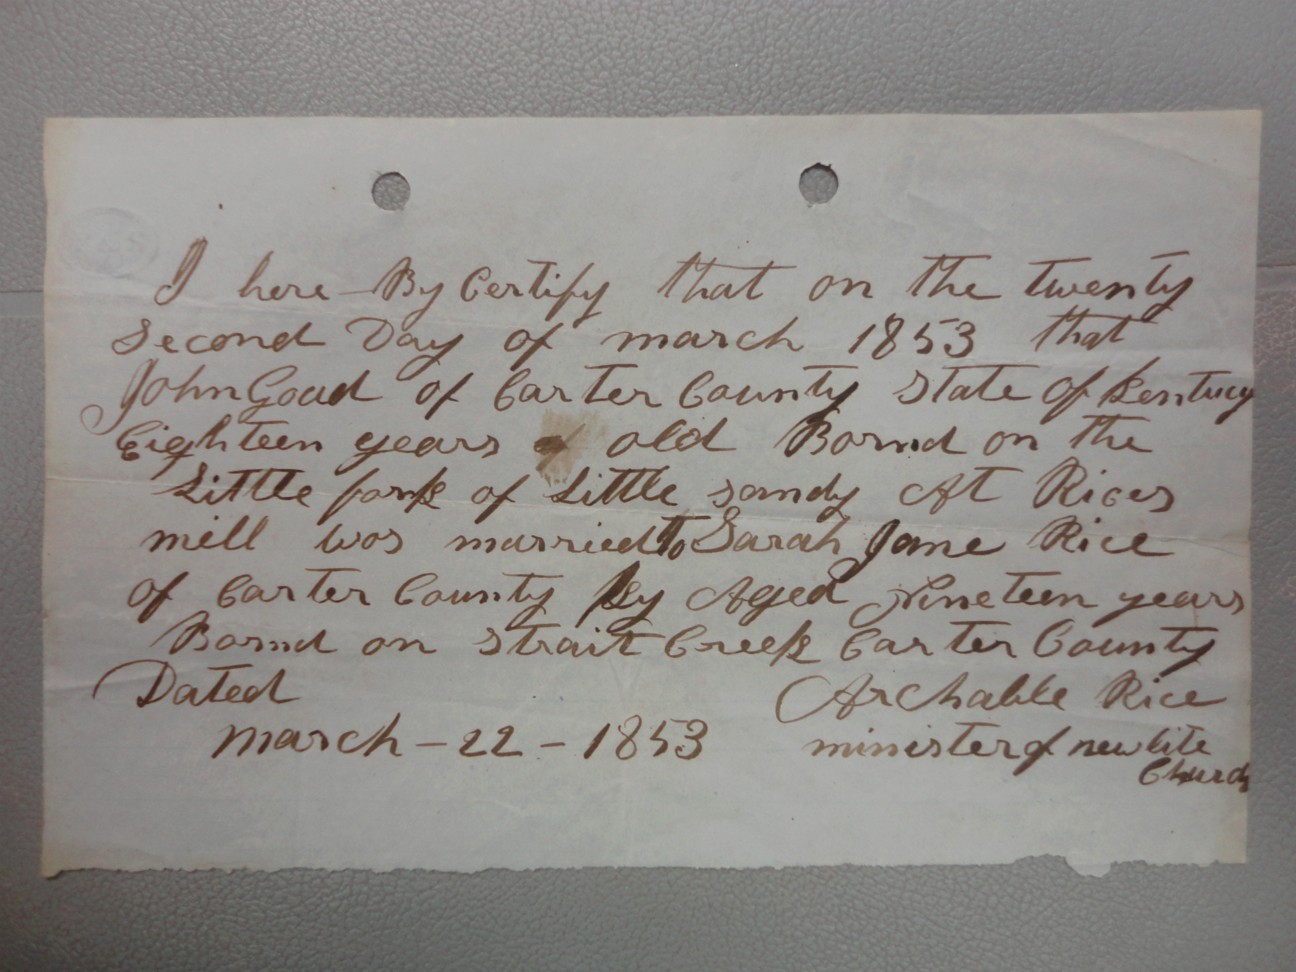 I here By Certify that on the twenty
Second Day of march 1853 that
John Goad of Carter County State of Kentucy
Eighteen years of old Bornd on the
Little fork of Little sandy At Rices
mill was married to Sarah Jane Rice
of Carter County Ky Aged Nineteen years
Bornd on Strait Creek Carter County
Dated Archable Rice
march - 22 - 1853 minister of new lite
Church